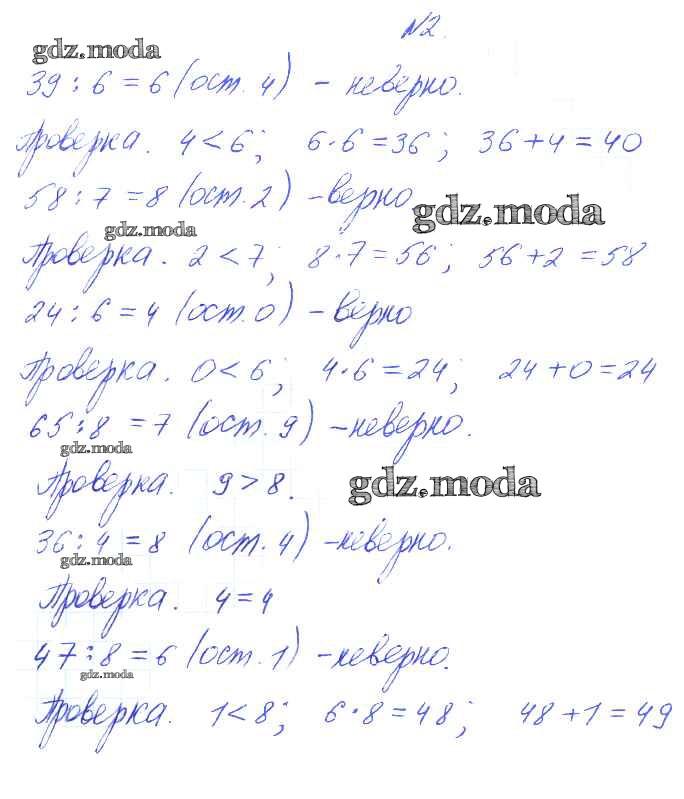 №2.
gdz.moda
39 : 6 = 6 (ост. 4) - неверно.
Проверка. 4 < 6; 6 · 6 = 36; 36 + 4 = 40
58 : 7 = 8 (ост. 2) - верно
gdz.moda
gdz.moda
Проверка. 2 < 7; 8 · 7 = 56; 56 + 2 = 58
24 : 6 = 4 (ост. 0) - верно
Проверка. 0 < 6; 4 · 6 = 24; 24 + 0 = 24
65 : 8 = 7 (ост. 9) - неверно.
gdz.moda
Проверка. 9 > 8.
gdz.moda
36 : 4 = 8 (ост. 4) - неверно.
gdz.moda
Проверка. 4 = 4
47 : 8 = 6 (ост. 1) - неверно.
gdz.moda
Проверка. 1 < 8; 6 · 8 = 48; 48 + 1 = 49